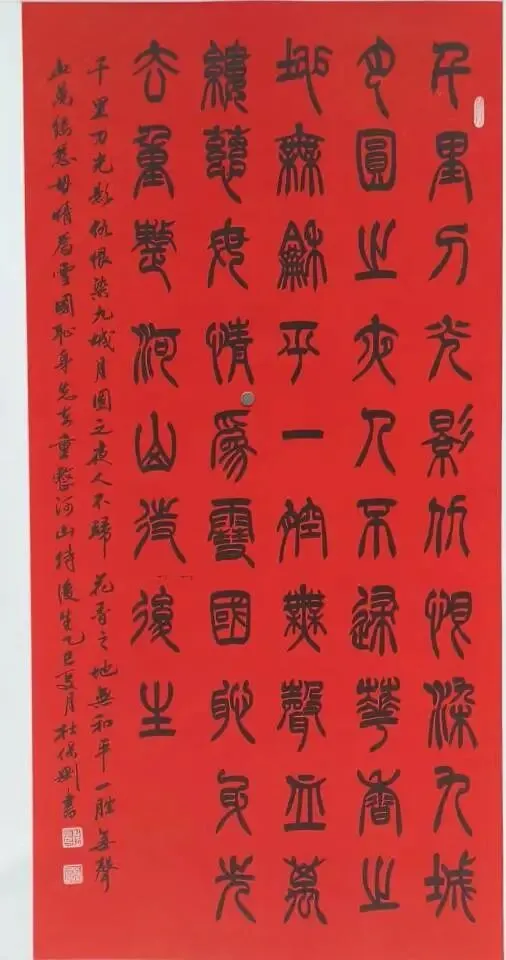 千里刀光影仇恨染九城
月圓之夜人不歸華香之
地無龢平一腔無聲血萬
縷慈母情為雪國恥身先
去重整河山待後生
千里刀光影仇恨染九城月圓之夜人不歸花香之地無和平一腔無聲
血萬縷慈母情為雪國恥身先去重整河山待後生乙巳夏月杜保剛書